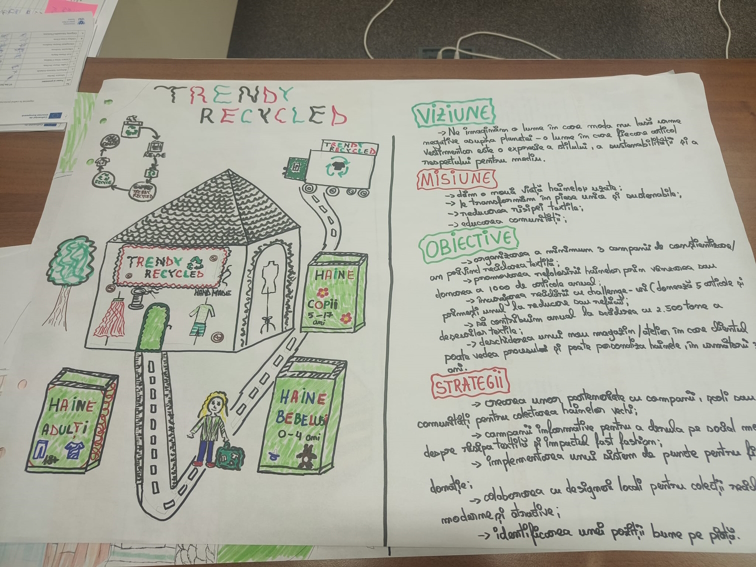 TRENDY
RECYCLED
TRENDY
RECYCLED
TRENDY
RECYCLED
HAND MADE
HAINE
COPII
5-17
ani
HAINE
ADULTI
18+
HAINE
BEBELUSI
0-4 ani
VIZIUNE
→ Ne imaginăm o lume în care moda nu lasă urme
negative asupra planetei - o lume în care fiecare articol
vestimentar este o expresie a stilului, a sustenabilității și a
respectului pentru mediu.
MISIUNE
→ dăm o nouă viață hainelor uzate;
→ le transformăm în piese unice și sustenabile;
→ reducerea risipei textile;
→ educarea comunității;
OBIECTIVE
→ organizarea a minimum 3 campanii de conștientizare/
an privind reciclarea textilă;
→ promovarea refolosirii hainelor prin vânzarea sau
donarea a 1000 de articole anual;
→ încurajarea reciclării cu challenge-uri (donează 5 articole și
primești unul la reducere sau
→ să contribuim anual la reducerea cu 2.500 tone a
deșeurilor textile;
→ deschiderea unui nou magazin/atelier în care clientul
poate vedea procesul și poate personaliza hainele, în următorii 3
ani.
STRATEGII
→ crearea unor parteneriate cu companii, școli sau
comunități pentru colectarea hainelor vechi;
→ campanii informative pentru a donula pe social me
despre risipa textilă și impactul fast fashion;
→ implementarea unui sistem de puncte pentru
donație;
→ colaborarea cu designeri locali pentru colecții
moderne și atractive;
→ identificarea unei poziții bune pe piață.